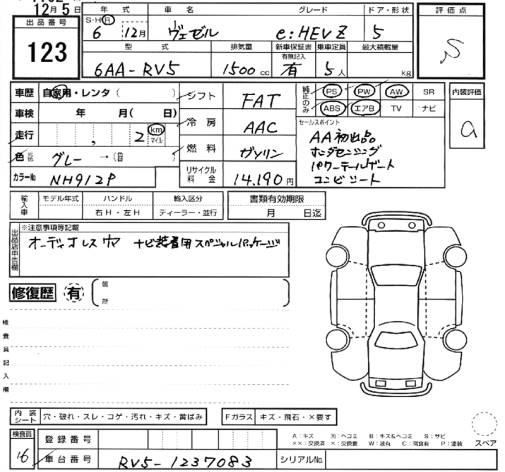 12月5日
出品番号 年式 車名 グレード ドア・形状 評価点
123 S・H・R 6 12月 ヴェゼル e:HEV Z 5 S
型式 排気量 新車保証書 有無記入 乗車定員 最大積載量
6AA-RV5 1500cc 有 5人 kg
車歴 自家用・レンタ ( ) シフト FAT 純正のみ PS PW AW SR 内装評価
車検 年 月( 日) 冷房 AAC ABS エアB TV ナビ a
走行 2 km マイル セールスポイント
色 グレー → 燃料 ガソリン AA初出品
カラーNo NH912P リサイクル料金 14,190円 ホンダセンシング
パワーテールゲート
コンビシート
輸入車 モデル年式 ハンドル 輸入区分 書類有効期限
右H・左H ディーラー・並行 月 日迄
※注意事項等記載
オーディオレス車 ナビ装着用スペシャルパッケージ
修復歴 有 箇所
検査員記入欄
内装シート 穴・破れ・スレ・コゲ・汚れ・キズ・黄ばみ Fガラス キズ・飛石・×要す
検査員 登録番号 スペア
16 車台番号 RV5-1237083 シリアルNo.